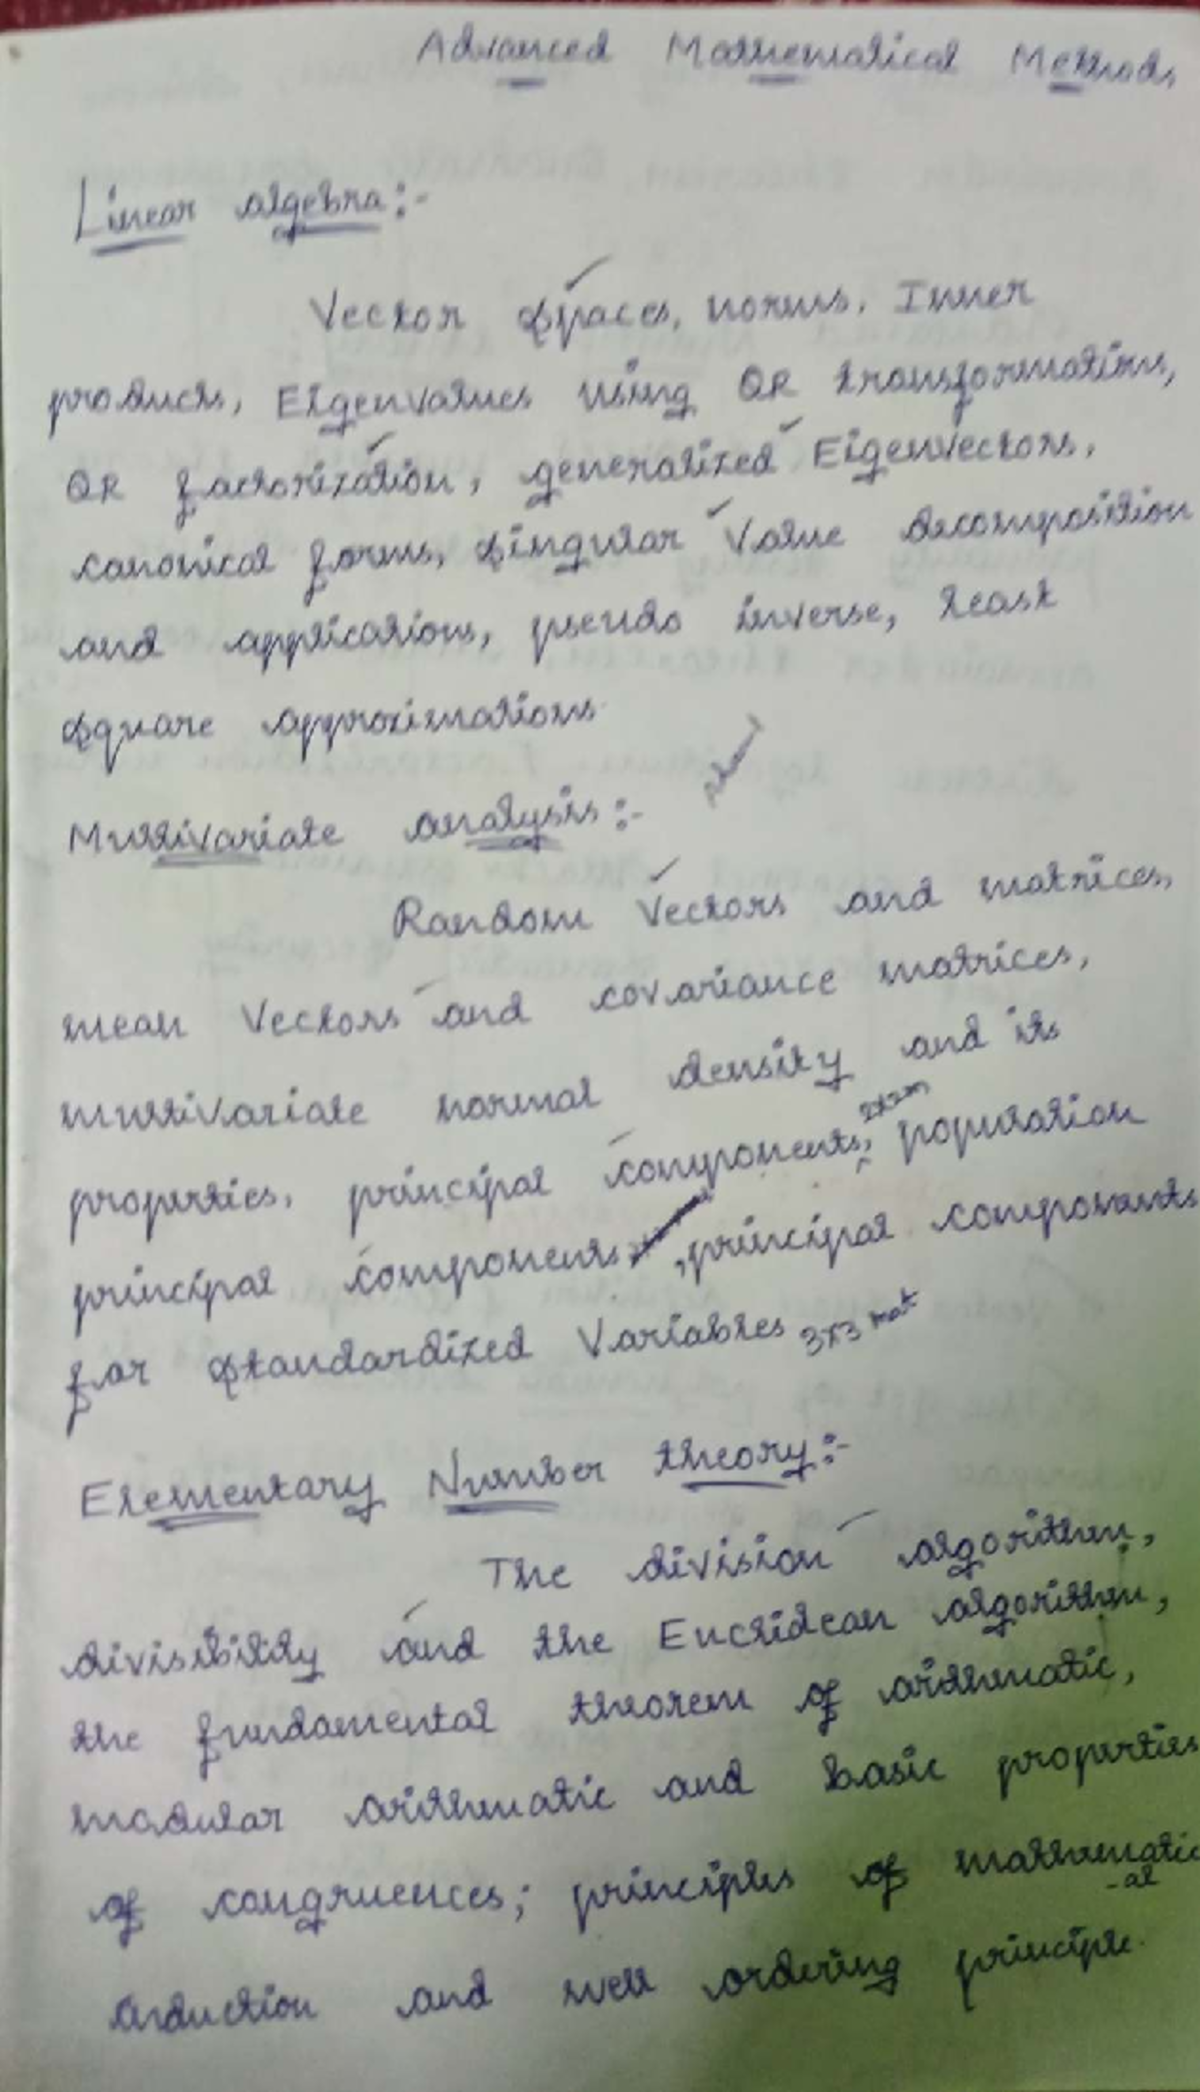 Advanced Mathematical Methods
Linear algebra:-
Vector spaces, norms, Inner
products, Eigenvalues using QR transformations,
QR factorization, generalized Eigenvectors,
canonical forms, singular value decomposition
and applications, pseudo inverse, least
square approximations
Multivariate analysis:-
Random Vectors and matrices,
mean Vectors and covariance matrices,
multivariate normal density and its
properties, principal components, population
principal components, principal components
for standardized Variables 3x3 mat
Elementary Number theory:-
The division algorithm,
divisibility and the Euclidean algorithm,
the fundamental theorem of arithmatic,
modular arithmatic and basic properties
of congruences; principles of mathematic
-al
induction and well ordering principle.